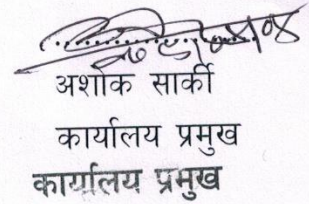 अशोक सार्की
कार्यालय प्रमुख
कार्यालय प्रमुख